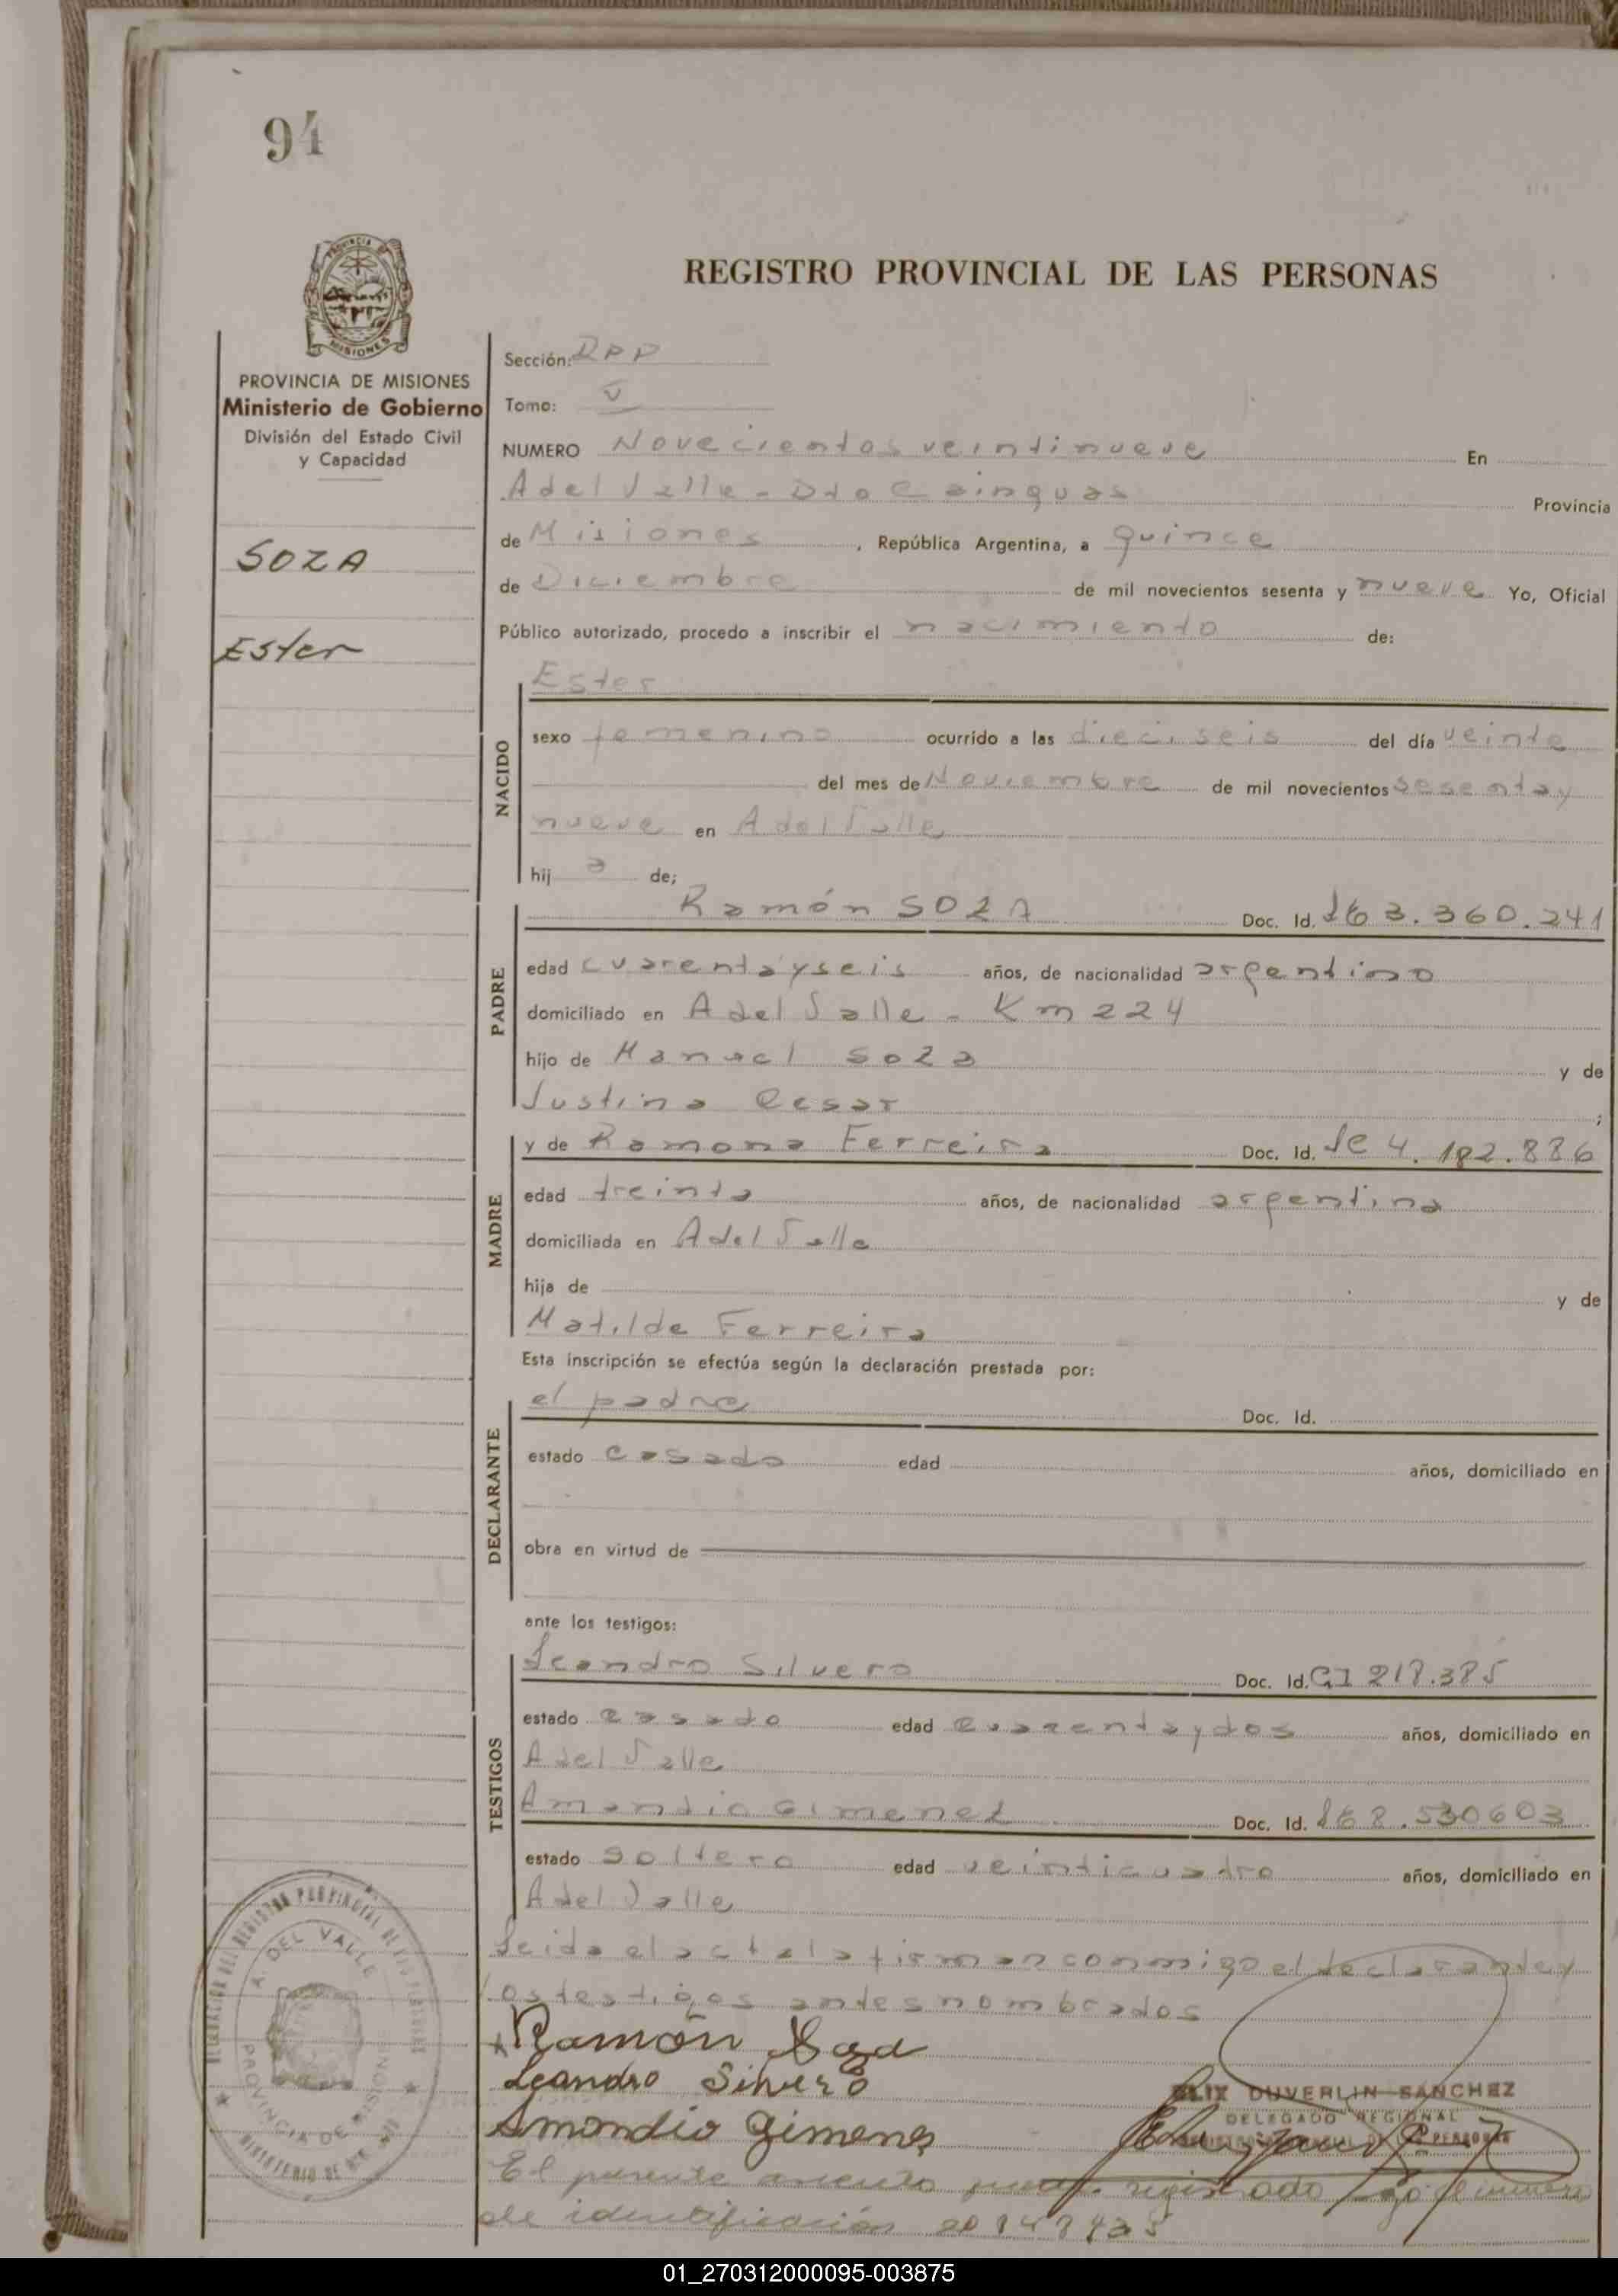 94
PROVINCIA DE
MISIONES
REGISTRO PROVINCIAL DE LAS PERSONAS
PROVINCIA DE MISIONES
Ministerio de Gobierno
División del Estado Civil
y Capacidad
SOZA
Ester
Sección: DPP
Tomo: V
NUMERO Novecientos veintinueve En
A del Valle - Dto Cainguas Provincia
de Misiones, República Argentina, a quince
de Diciembre de mil novecientos sesenta y nueve Yo, Oficial
Público autorizado, procedo a inscribir el nacimiento de:
NACIDO
Ester
sexo femenino ocurrido a las dieciseis del día veinte
del mes de Noviembre de mil novecientos sesenta y
nueve en A del Valle
hij a de;
PADRE
Ramón SOZA Doc. Id. 3.360.241
edad cuarenta y seis años, de nacionalidad argentino
domiciliado en A del Valle - Km 224
hijo de Manuel Soza y de
Justina Cesar ;
MADRE
y de Ramona Ferreira Doc. Id. 4.182.886
edad treinta años, de nacionalidad argentina
domiciliada en A del Valle
hija de y de
Matilde Ferreira
Esta inscripción se efectúa según la declaración prestada por:
DECLARANTE
el padre Doc. Id.
estado casado edad años, domiciliado en
obra en virtud de
ante los testigos:
TESTIGOS
Leandro Silvero Doc. Id. CI 218.385
estado casado edad cuarenta y dos años, domiciliado en
A del Valle
Amandio Gimenez Doc. Id. 8.530603
estado soltero edad veinticuatro años, domiciliado en
A del Valle
Leida el acta la firman conmigo el declarante y
los testigos antes nombrados
Ramón Soza
Leandro Silvero
Amandio Gimenez
FELIX DUVERLIN SANCHEZ
DELEGADO REGIONAL
DELEGACION DEL REGISTRO PROVINCIAL DE LAS PERSONAS
A. DEL VALLE
PROVINCIA DE MISIONES
El presente asiento registrado bajo el numero
de identificación
01_270312000095-003875